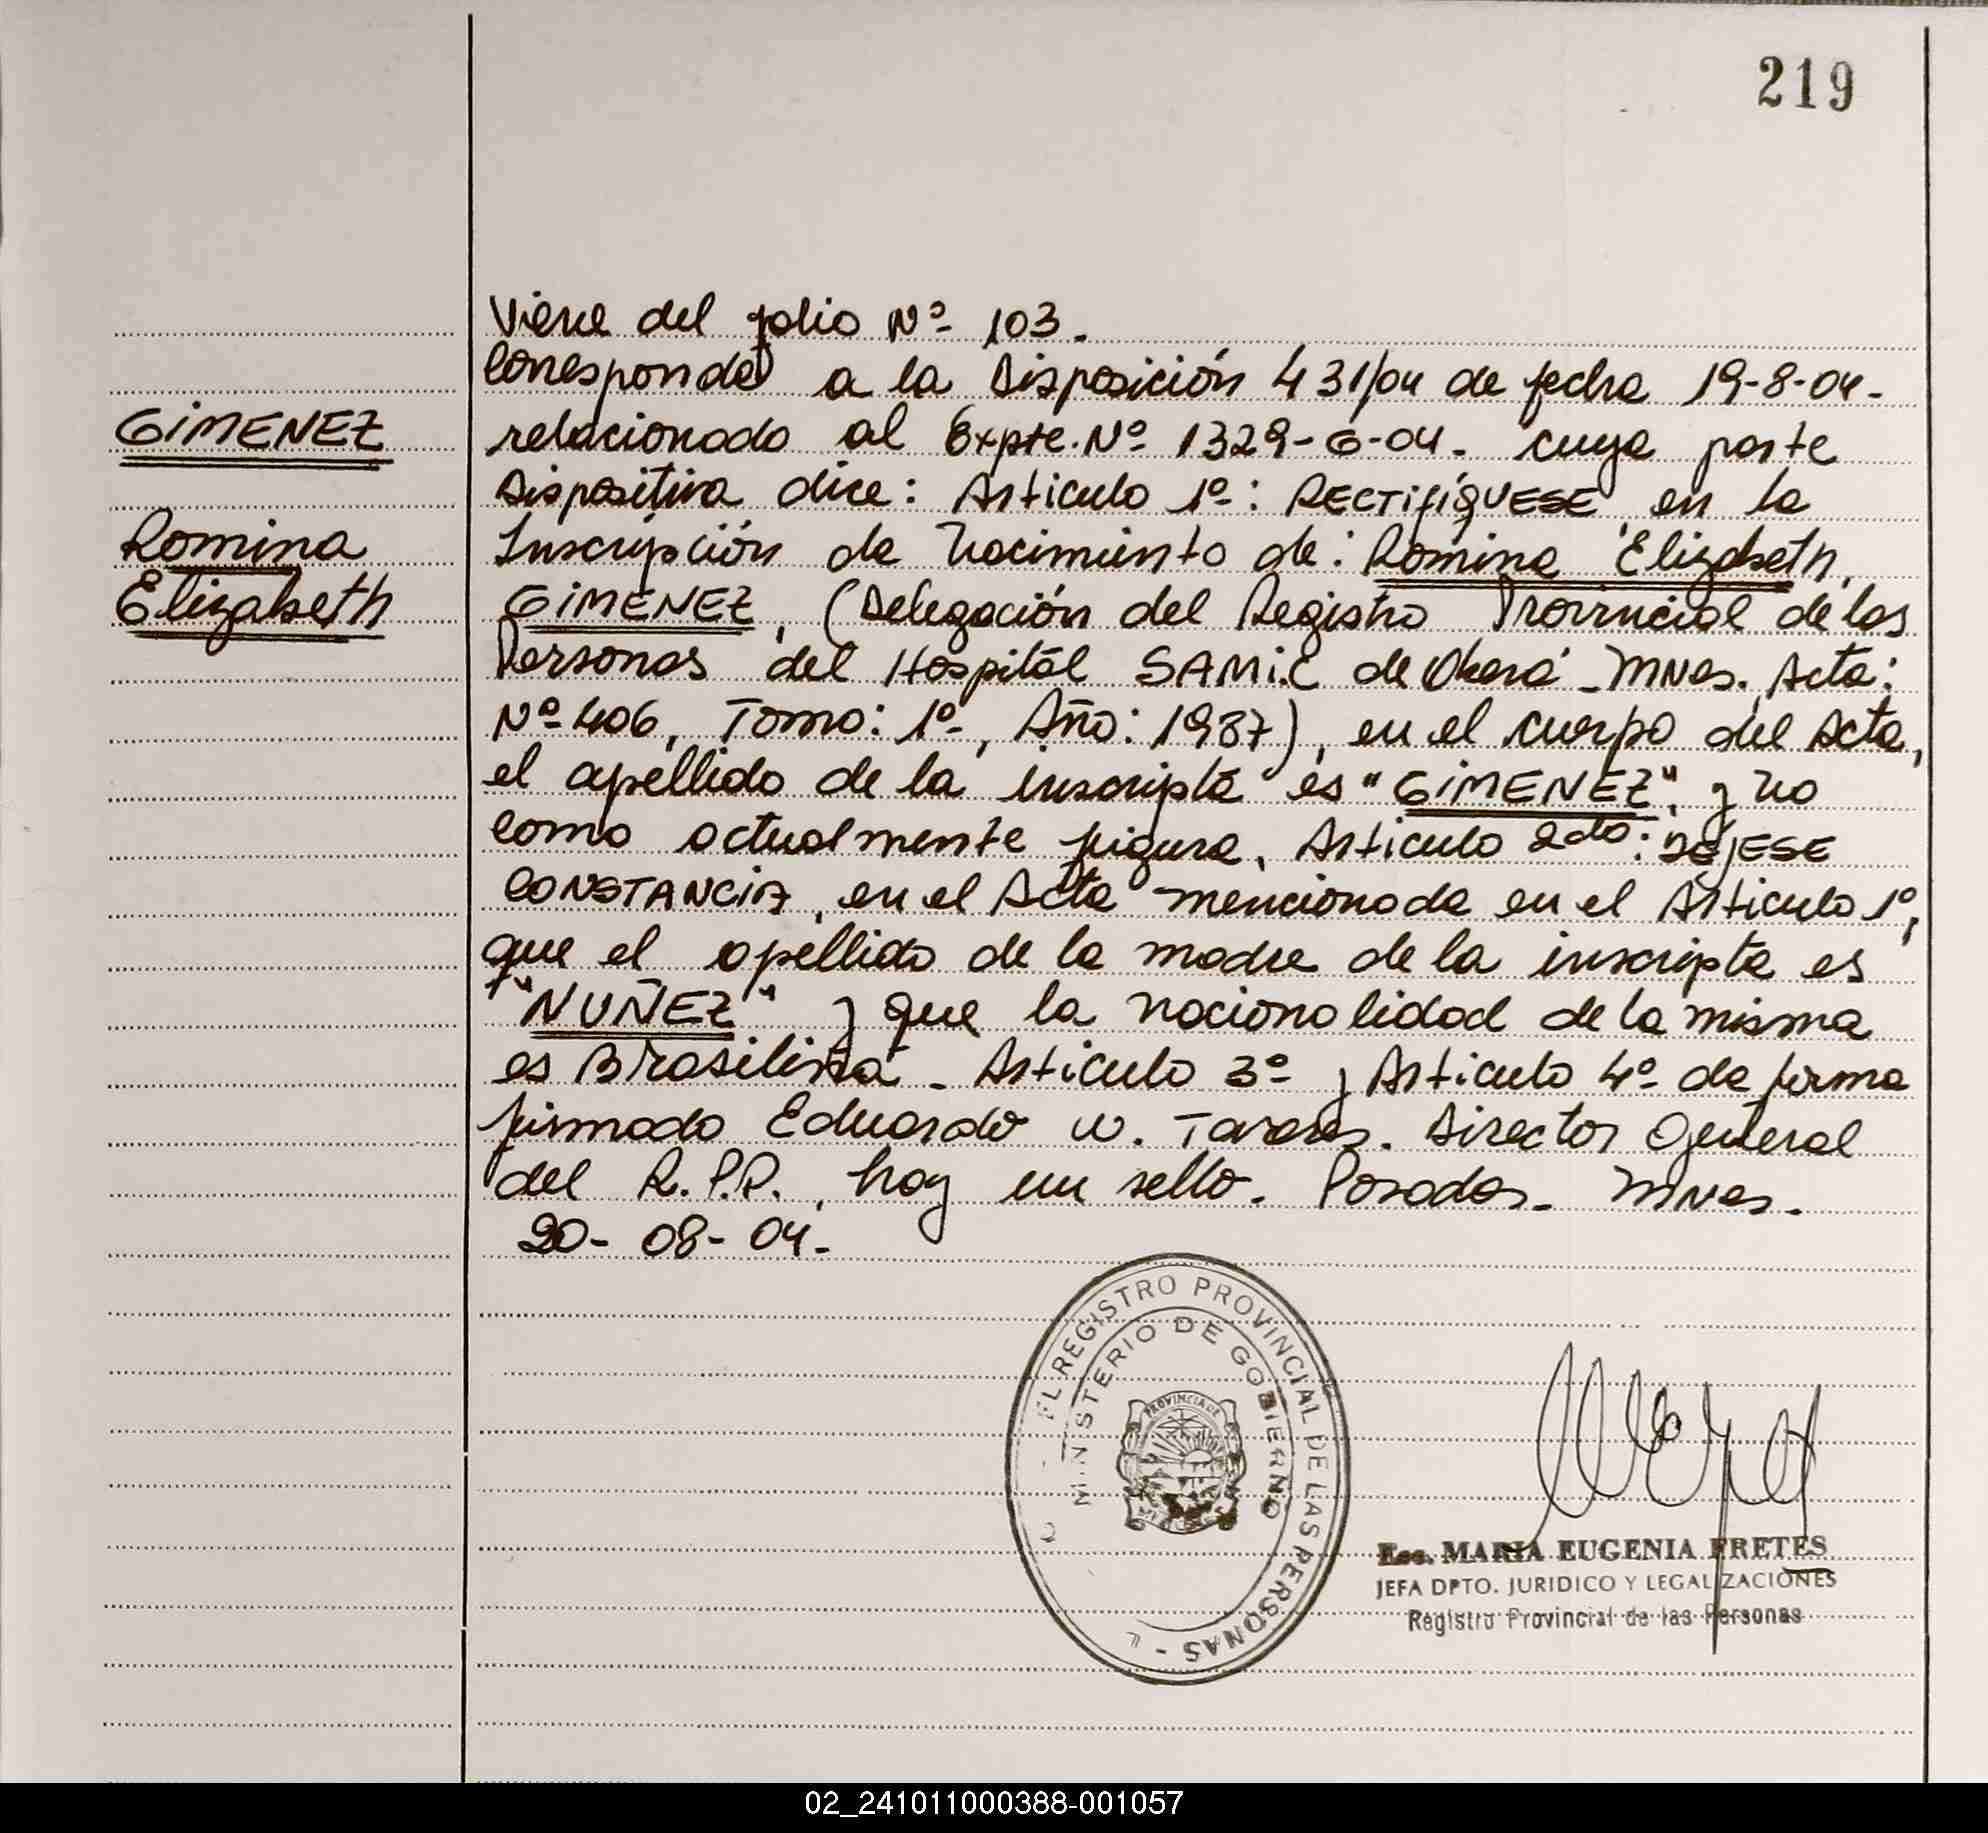 219
Viene del folio Nº 103.
Corresponde a la Disposición 431/04 de fecha 19-8-04-
GIMENEZ
relacionado al Expte. Nº 1329-G-04. cuya parte
Dispositiva dice: Articulo 1º: RECTIFÍQUESE en la
Romina
Inscripción de Nacimiento de: Romina Elizabeth,
Elizabeth
GIMENEZ, (Delegación del Registro Provincial de las
Personas del Hospital SAMIC de Oberá - Mnes. Acta:
Nº 406, Tomo: 1º, Año: 1987), en el cuerpo del Acta,
el apellido de la inscripta es "GIMENEZ", y no
como actualmente figura, Articulo 2do: DÉJESE
CONSTANCIA, en el Acta mencionada en el Articulo 1º,
que el apellido de la madre de la inscripta es
"NUÑEZ" y que la nacionalidad de la misma
es Brasilera - Articulo 3º y Articulo 4º de forma
firmado Eduardo W. Tavares. Director General
del R.P.P., hay un sello. Posadas - Mnes.
20-08-04.
REGISTRO PROVINCIAL DE LAS PERSONAS -
MINISTERIO DE GOBIERNO
PROVINCIA DE
Esc. MARIA EUGENIA FRETES
JEFA DPTO. JURIDICO Y LEGALIZACIONES
Registro Provincial de las Personas
02_241011000388-001057